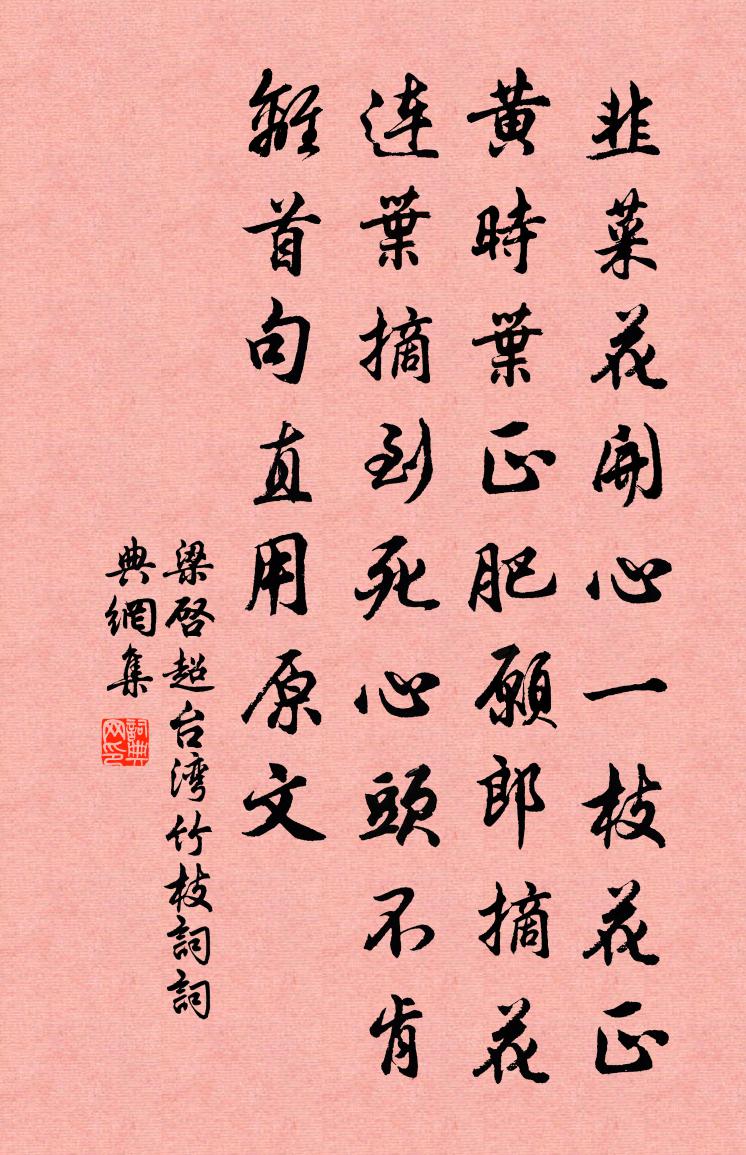 韭菜花開心一枝花正
黃時葉正肥願郎摘花
連葉摘到死心頭不肯
離首句直用原文
梁啓超台灣竹枝詞詞
典網集
詞典網印